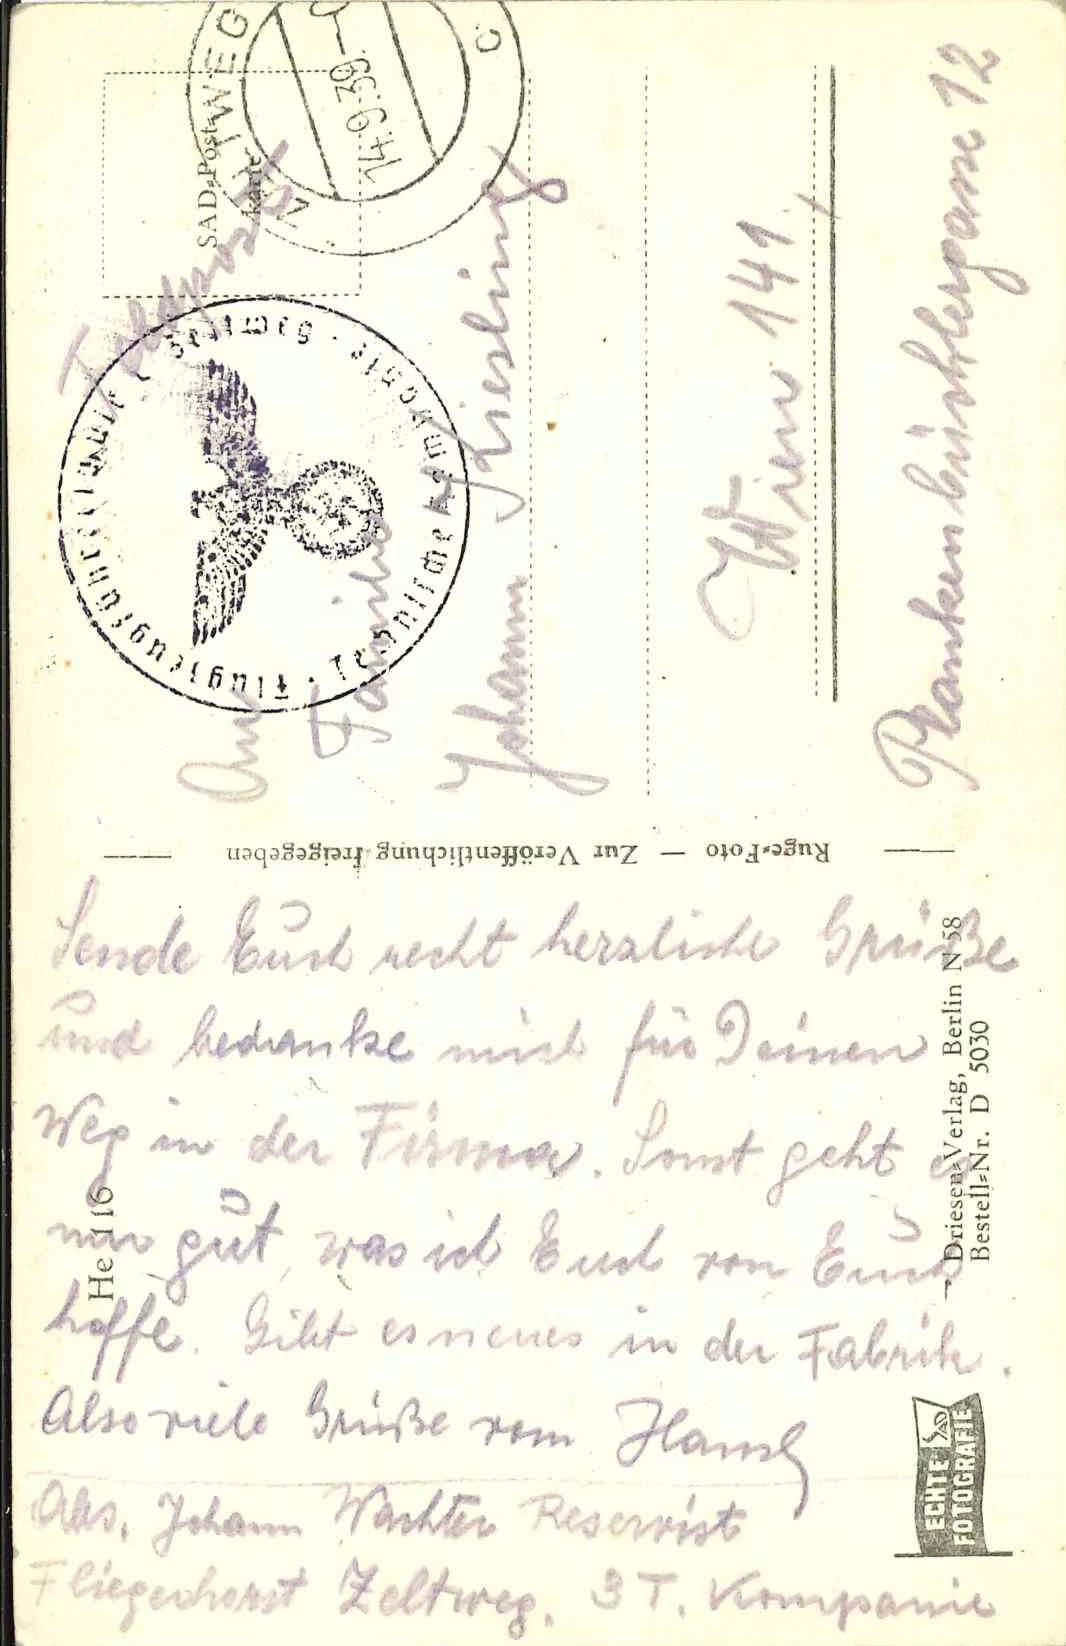 Feldpost
SAD-Post-
karte
ZELTWEG
14.9.39.
c
Flugzeugführerschule C Zeltweg
An
Familie
Johann Kiesling
Wien 141.
Plankenbüchlergasse 12
Ruge-Foto — Zur Veröffentlichung freigegeben
Sende Euch recht herzliche Grüße
und bedanke mich für Deinen
Weg in der Firma. Sonst geht es
mir gut, was ich Euch von Euch
hoffe. Gibt es neues in der Fabrik.
Also viele Grüße vom Hansl
Abs. Johann Wachter Reservist
Fliegerhorst Zeltweg. 3 T. Kompanie
He 116
Driesen-Verlag, Berlin N 58
Bestell-Nr. D 5030
ECHTE
FOTOGRAFIE